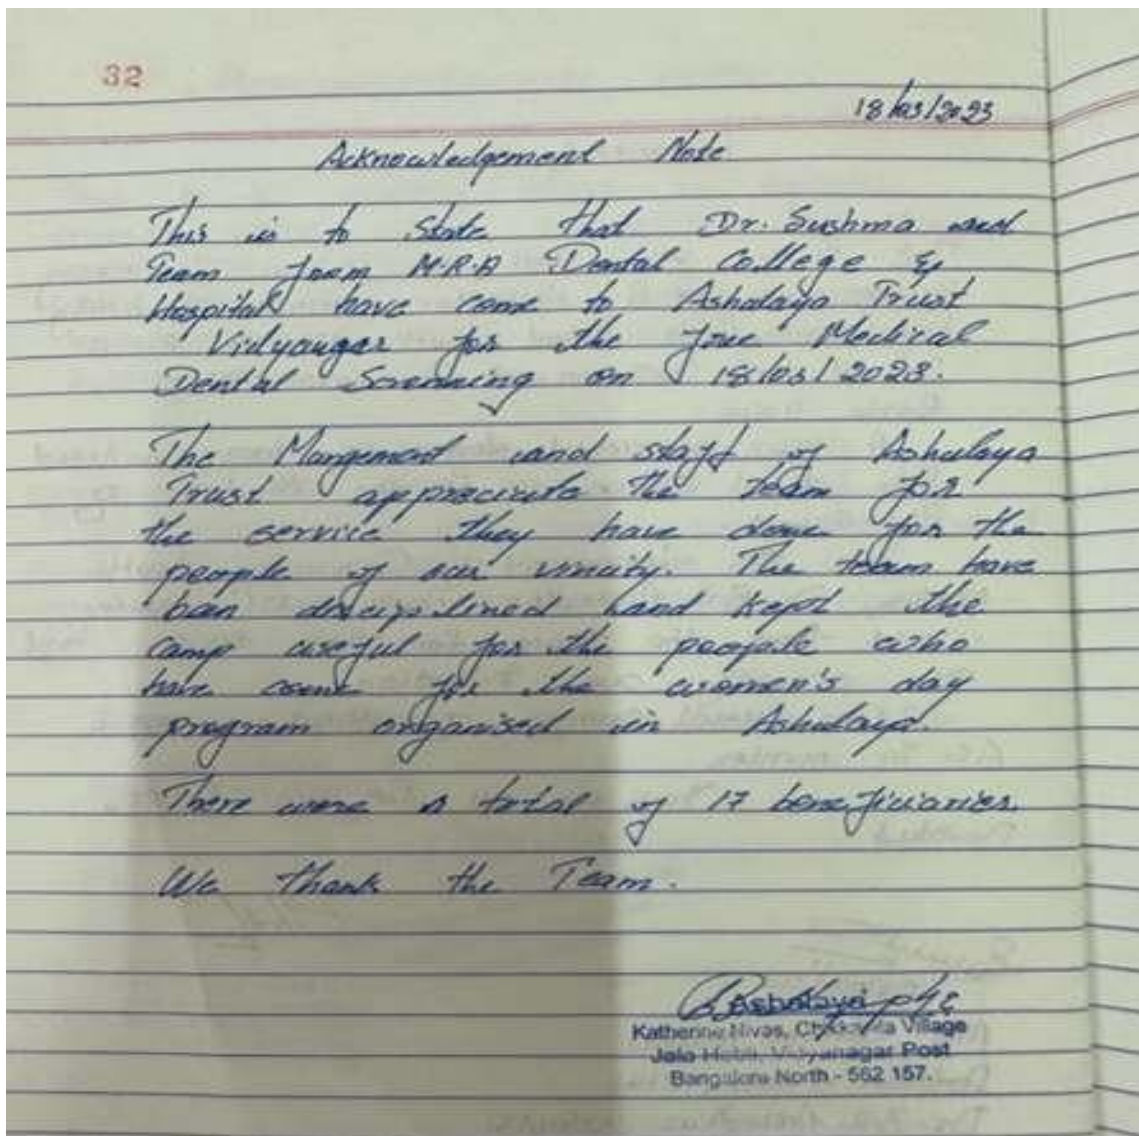 32
18/03/2023
Acknowledgement Note
This is to state that Dr. Sushma and
Team from M.R.A Dental College &
Hospital have come to Ashalaya Trust
Vidyanagar for the free Medical
Dental Screening on 18/03/2023.
The Mangement and staff of Ashalaya
Trust appreciate the team for
the service they have done for the
people of our vincity. The team have
been disciplined and kept the
camp useful for the people who
have come for the women's day
program organised in Ashalaya.
There were a total of 17 beneficiaries.
We thank the Team.
Ashalaya
Katherine Nivas, Village
Jala Hobli, Vidyanagar Post
Bangalore North - 562 157.